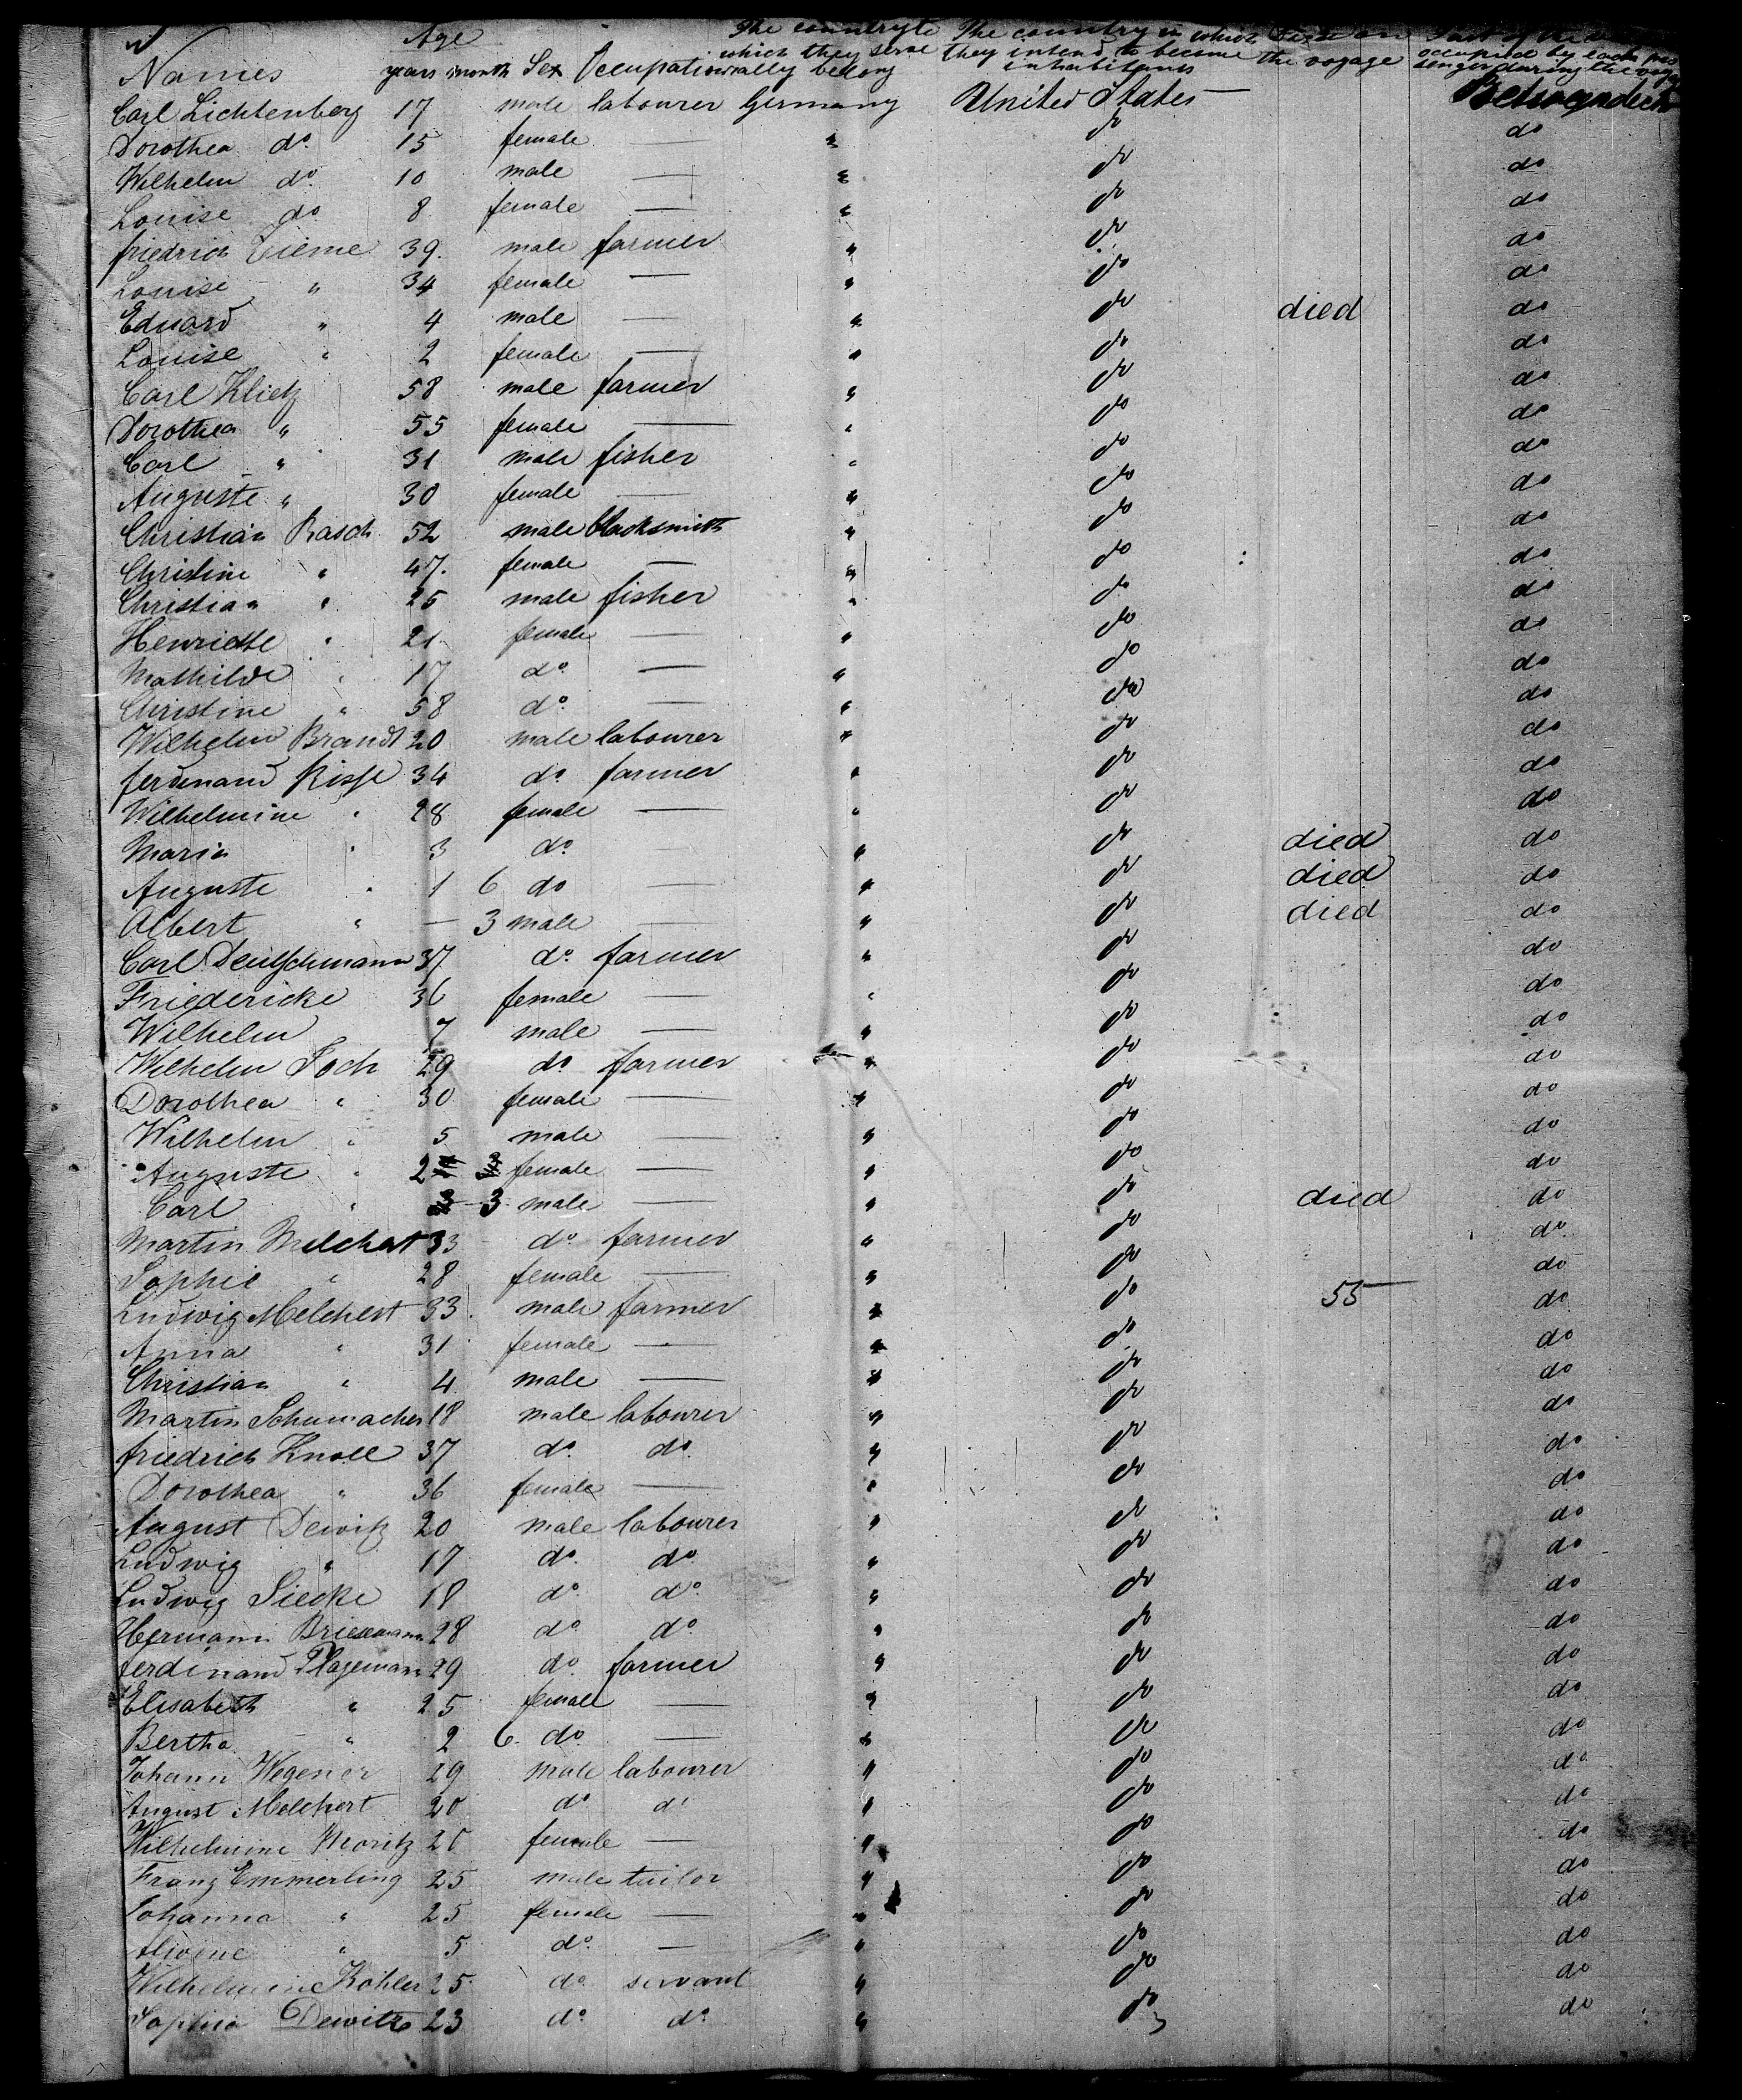 Age The country to The country in which Died on Part of the
which they seve they intend to become the voyage occupied by each pas
Names years month Sex Occupation rally belong inhabitants senger during the voya
Carl Lichtenberg 17 male labourer Germany United States Betweendeck
Dorothea do 15 female — " do do
Wilhelm do 10 male — " do do
Louise do 8 female — " do do
friedrich Tieme 39 male farmer " do do
Louise " 34 female — " do do
Eduard " 4 male — " do died do
Louise " 2 female — " do do
Carl Klietz 58 male farmer " do do
Dorothea " 55 female — " do do
Carl " 31 male fisher " do do
Auguste " 30 female — " do do
Christian Rasch 52 male blacksmith " do do
Christine " 47 female — " do do
Christian " 25 male fisher " do do
Henriette " 21 female — " do do
Mathilde " 17 do — " do do
Christine " 58 do — " do do
Wilhelm Brandt 20 male labourer " do do
ferdinand Risse 34 do farmer " do do
Wilhelmine " 28 female — " do do
Maria " 3 do " do died do
Auguste " 1 6 do — " do died do
Albert " — 3 male — " do died do
Carl Deutschmann 37 do farmer " do do
Friedericke 36 female — " do do
Wilhelm 7 male — " do do
Wilhelm Toch 29 do farmer " do do
Dorothea " 30 female — " do do
Wilhelm " 5 male — " do do
Auguste " 2 female — " do do
Carl " 3 male — " do died do
Martin Melchert 33 do farmer " do do
Sophie " 28 female — " do do
Ludwig Melchert 33 male farmer " do 55 do
Anna " 31 female — " do do
Christian " 4 male — " do do
Martin Schumacher 18 male labourer " do do
friedrich Knoll 37 do do " do do
Dorothea " 36 female — " do do
August Dewitz 20 male labourer " do do
Ludwig " 17 do do " do do
Ludwig Siecke 18 do do " do do
Hermann Briesemann 28 do do " do do
ferdinand Plagemann 29 do farmer " do do
Elisabeth " 25 female — " do do
Bertha " 2 6 do — " do do
Johann Wegener 29 male labourer " do do
August Melchert 20 do do " do do
Wilhelmine Moritz 20 female — " do do
Franz Emmerling 25 male tailor " do do
Johanna " 25 female — " do do
Alwine " 5 do — " do do
Wilhelmine Kohler 25 do servant " do do
Sophia Dewitz 23 do do " do do